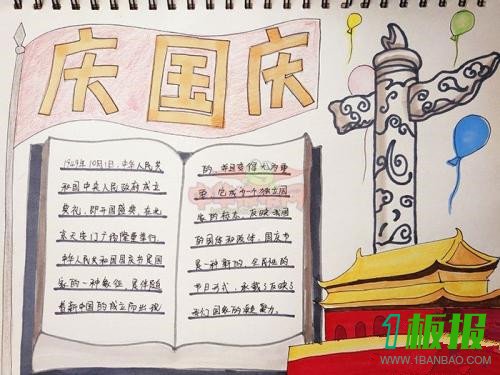 庆国庆
1949年10月1日,中华人民共
和国中央人民政府成立
典礼,即开国盛典,在北
京天安门广场隆重举行
中华人民共和国国庆节是国
家的一种象征,是伴随
着新中国的成立而出现
的,并且变得尤为重
要,它成为一个独立国
家的标志,反映我国
的国体和政体,国庆节
是一种新的、全民性的
节日形式,承载了反映了
我们国家的凝聚力。
1板报
WWW.1BANBAO.COM